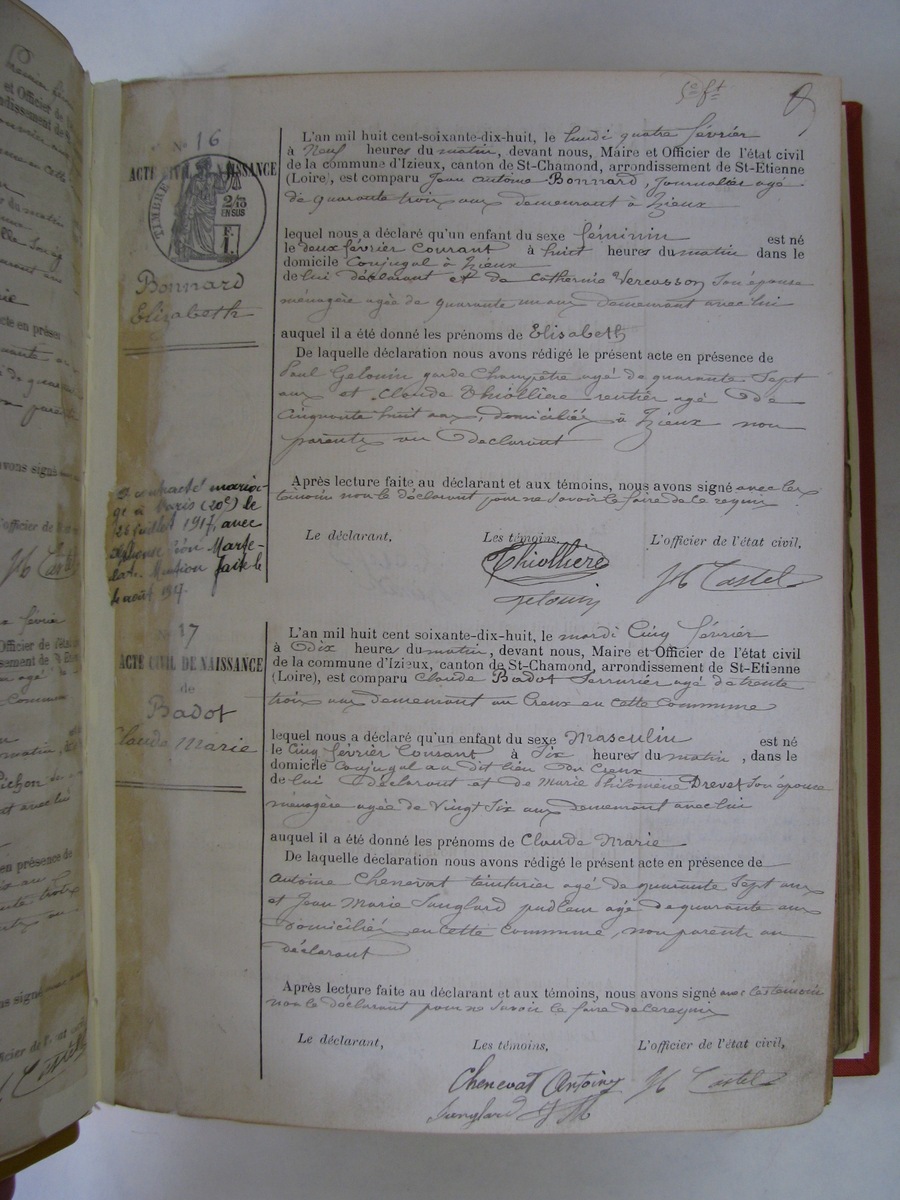 5e ft
N° 16
ACTE CIVIL DE NAISSANCE
TIMBRE
2/10
EN SUS
F.
1.
Bonnard
Elisabeth
L'an mil huit cent-soixante-dix-huit, le lundi quatre février
à Neuf heures du matin, devant nous, Maire et Officier de l'état civil
de la commune d'Izieux, canton de St-Chamond, arrondissement de St-Etienne
(Loire), est comparu Jean Antoine Bonnard, journalier agé
de quarante trois ans demeurant à Izieux
lequel nous a déclaré qu'un enfant du sexe féminin est né
le deux février courant à huit heures du matin dans le
domicile conjugal à Izieux
de lui déclarant et de Catherine Vercasson son épouse
ménagère agée de quarante un ans demeurant avec lui
auquel il a été donné les prénoms de Elisabeth
De laquelle déclaration nous avons rédigé le présent acte en présence de
Paul Gelouin garde champêtre agé de quarante sept
ans et Claude Thiollière rentier agé de
cinquante huit ans, domiciliés à Izieux non
parents au déclarant
Après lecture faite au déclarant et aux témoins, nous avons signé avec les
témoins non le déclarant pour ne savoir le faire de ce requis
Le déclarant, Les témoins, L'officier de l'état civil,
Thiollière
Gelouin
A contracté maria-
ge à Paris (20e) le
juillet 1917, avec
Léon Marte-
Mention faite le
août 1917.
N° 17
ACTE CIVIL DE NAISSANCE
de
Badot
Claude Marie
L'an mil huit cent soixante-dix-huit, le mardi cinq février
à dix heures du matin, devant nous, Maire et Officier de l'état civil
de la commune d'Izieux, canton de St-Chamond, arrondissement de St-Etienne
(Loire), est comparu Claude Badot serrurier agé de trente
trois ans demeurant au Creux en cette commune
lequel nous a déclaré qu'un enfant du sexe Masculin est né
le cinq février courant à six heures du matin, dans le
domicile conjugal au dit lieu du Creux
de lui déclarant et de Marie Philomène Drevet son épouse
ménagère agée de vingt six ans demeurant avec lui
auquel il a été donné les prénoms de Claude Marie
De laquelle déclaration nous avons rédigé le présent acte en présence de
Antoine Chenevat teinturier agé de quarante sept ans
et Jean Marie Sanglard agé de quarante ans
domiciliés en cette commune, non parents au
déclarant
Après lecture faite au déclarant et aux témoins, nous avons signé avec les témoins
non le déclarant pour ne savoir le faire de ce requis
Le déclarant, Les témoins, L'officier de l'état civil,
Chenevat Antoine
Sanglard JM